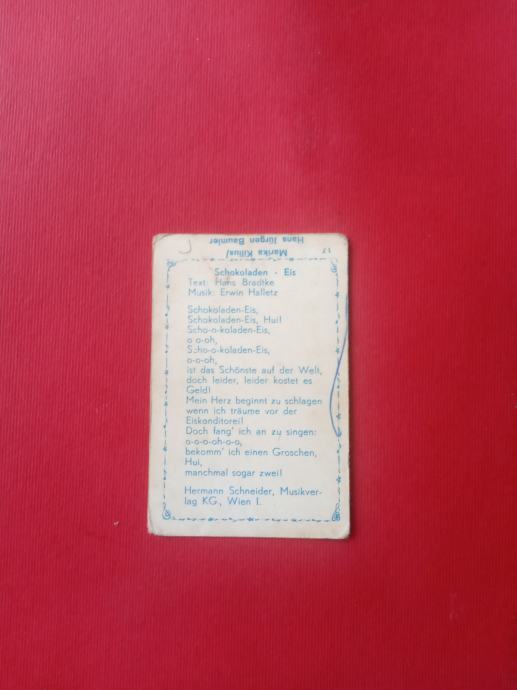 17
Marika Kilius/
Hans Jürgen Baumler
Schokoladen - Eis
Text: Hans Bradtke
Musik: Erwin Halletz
Schokoladen-Eis,
Schokoladen-Eis, Hui!
Scho-o-koladen-Eis,
o o-oh,
Scho-o-koladen-Eis,
o-o-oh,
ist das Schönste auf der Welt,
doch leider, leider kostet es
Geld!
Mein Herz beginnt zu schlagen
wenn ich träume vor der
Eiskonditorei!
Doch fang' ich an zu singen:
o-o-o-oh-o-o,
bekomm' ich einen Groschen,
Hui,
manchmal sogar zwei!
Hermann Schneider, Musikver-
lag KG., Wien I.